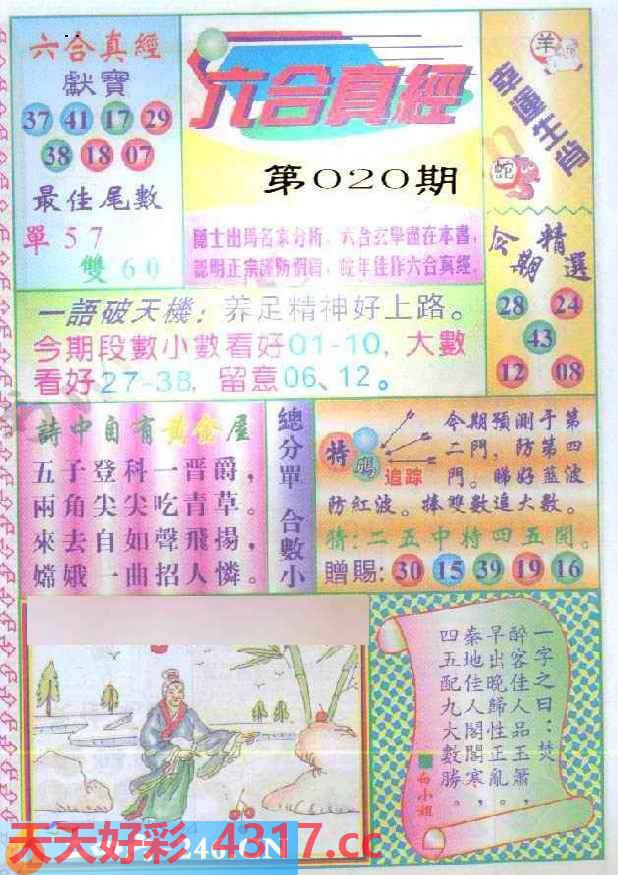 六合真經
獻寶
37 41 17 29
38 18 07
最佳尾數
單57
雙60
六合真經
第020期
幸運生肖
羊
蛇
今期精選
28 24
43
12 08
一語破天機：养足精神好上路。
今期段數小數看好01-10，大數
看好27-38，留意06、12。
詩中自有黃金屋
五子登科一晋爵，
兩角尖尖吃青草。
來去自如聲飛揚，
嫦娥一曲招人憐。
總分單
合數小
特
追踪
今期預測于第
二門，防第四
門。睇好藍波
防紅波。捧雙數追大數。
猜：二五中特四五開。
贈賜：30 15 39 19 16
一字之曰：焚
醉客佳人品玉簫，
早出晚歸性正亂。
秦地佳人閣閣寒，
四五配九大數勝。
白小姐
天天好彩 4317.cc
246.CN